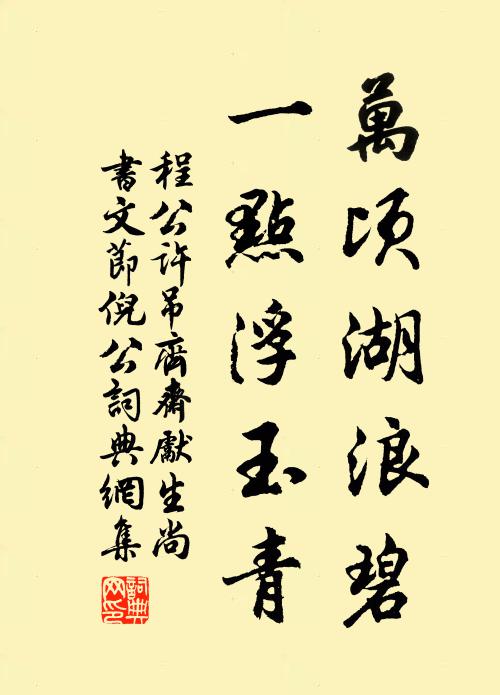 萬頃湖浪碧
一點浮玉青
程公許吊齊齋獻生尚
書文節倪公詞典網集
詞典網印